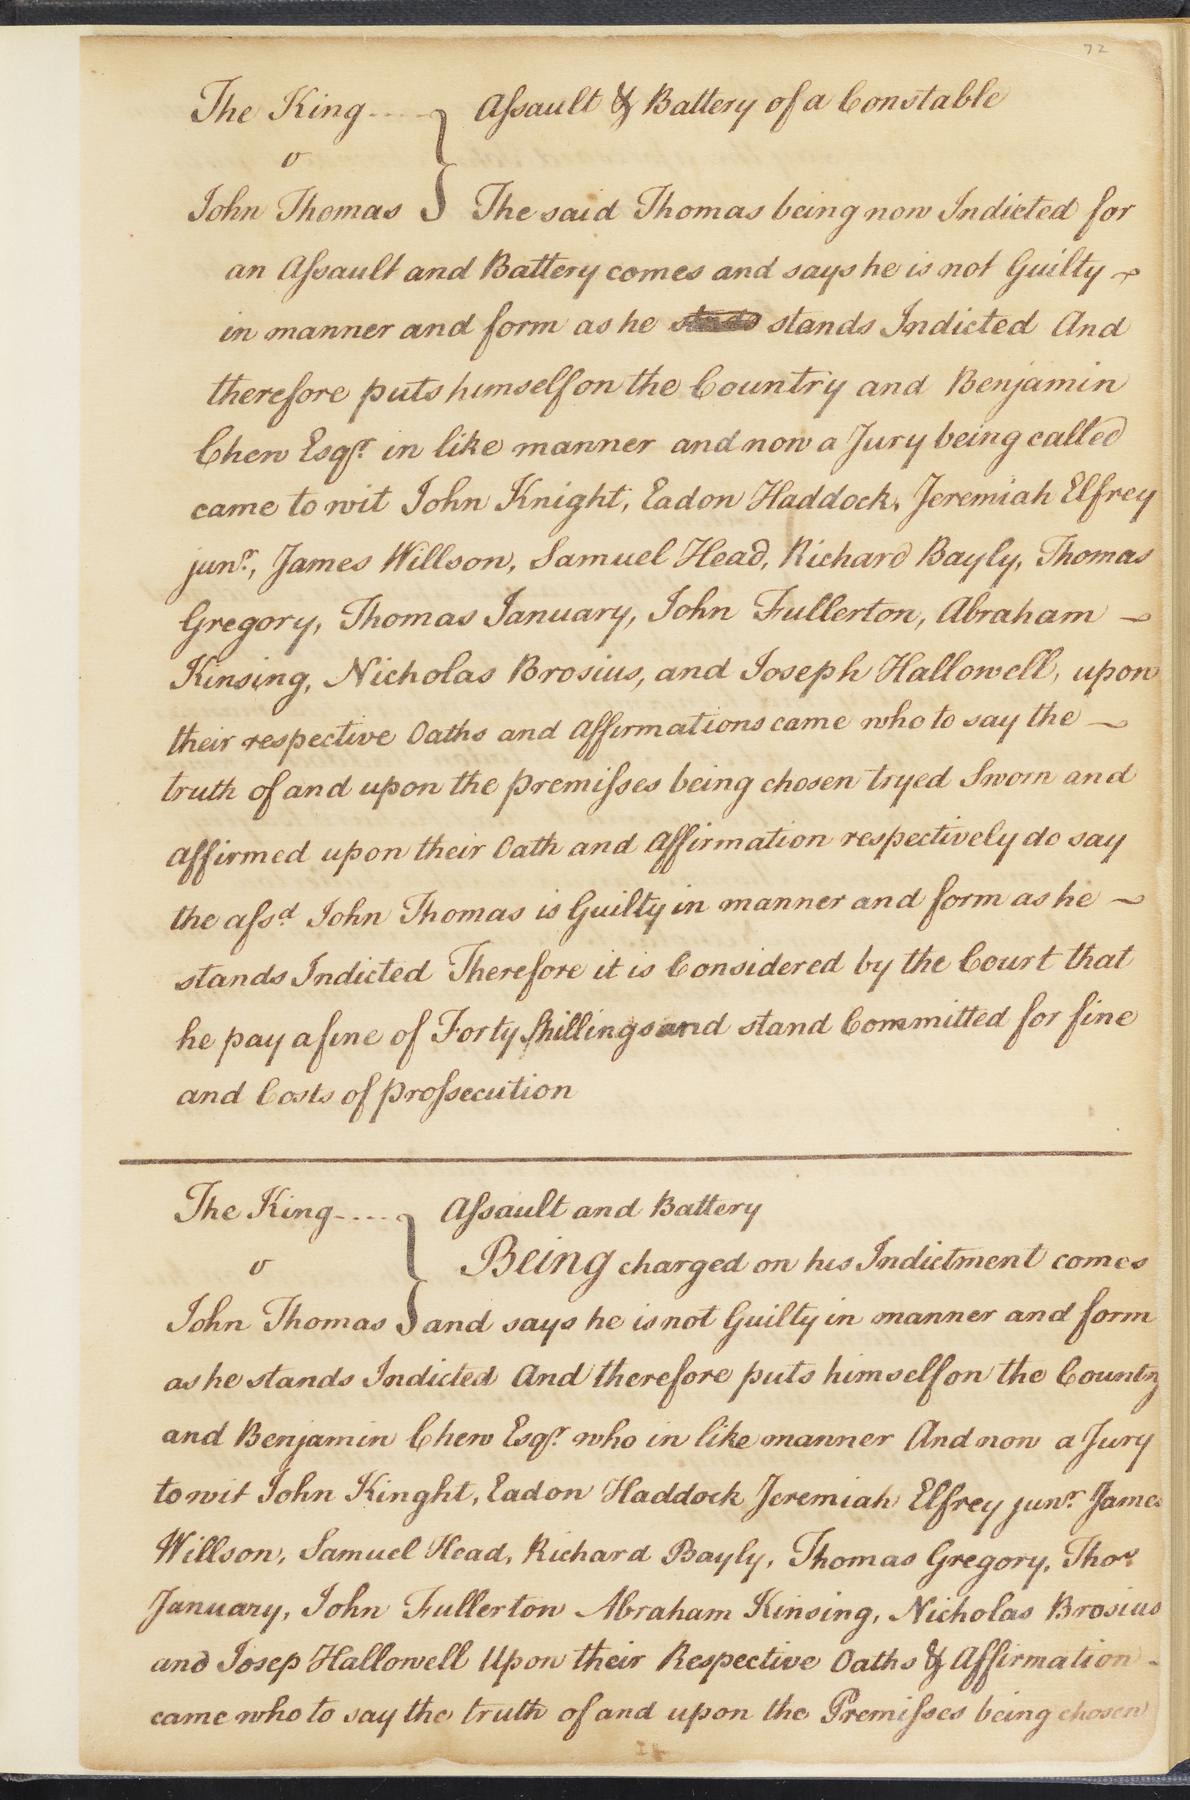 72
The King.... Assault & Battery of a Constable
v
John Thomas } The said Thomas being now Indicted for
an Assault and Battery comes and says he is not Guilty
in manner and form as he stands Indicted And
therefore puts himself on the Country and Benjamin
Chew Esqr. in like manner and now a Jury being called
came to wit John Knight, Eadon Haddock, Jeremiah Elfrey
junr., James Willson, Samuel Head, Richard Bayly, Thomas
Gregory, Thomas January, John Fullerton, Abraham
Kinsing, Nicholas Brosius, and Joseph Hallowell, upon
their respective Oaths and Affirmations came who to say the
truth of and upon the premisses being chosen tryed Sworn and
Affirmed upon their Oath and Affirmation respectively do say
the afsd. John Thomas is Guilty in manner and form as he
stands Indicted Therefore it is Considered by the Court that
he pay a fine of Forty Shillings and stand Committed for fine
and Costs of prossecution
The King.... Assault and Battery
Being charged on his Indictment comes
v
John Thomas } and says he is not Guilty in manner and form
as he stands Indicted And therefore puts himself on the Country
and Benjamin Chew Esqr. who in like manner And now a Jury
to wit John Kinght, Eadon Haddock Jeremiah Elfrey junr. James
Willson, Samuel Head, Richard Bayly, Thomas Gregory, Thos.
January, John Fullerton Abraham Kinsing, Nicholas Brosius
and Josep Hallowell Upon their Respective Oaths & Affirmation
came who to say the truth of and upon the Premisses being chosen